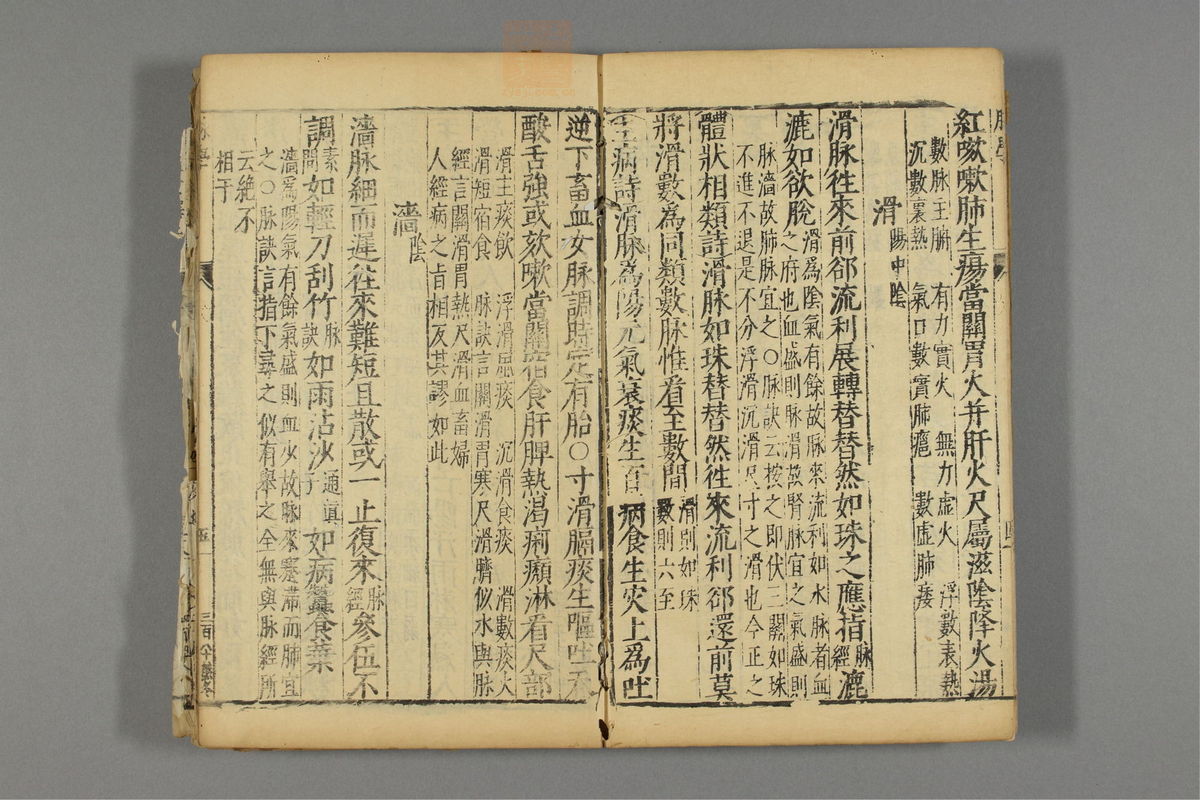 紅嗽嗽肺生瘍當關胃火并肝火尺屬滋陰降火湯
數脉主腑 有力實火 無力虛火 浮數表熱
沉數裏熱 氣口數實肺癰 數虛肺痿
滑 陽中陰
滑脉徃來前郤流利展轉替替然如珠之應指脉經漉
漉如欲脫
滑爲陰氣有餘故脉來流利如水脉者血
之府也血盛則脉滑故腎脉宜之氣盛則
脉濇故肺脉宜之〇脉訣云按之即伏三關如珠
不進不退是不分浮滑沉滑尺寸之滑也今正之
體狀相類詩滑脉如珠替替然徃來流利郤還前莫
將滑數爲同類數脉惟看至數間
滑則如珠
數則六至
主病詩滑脉爲陽元氣衰痰生百病食生灾上爲吐
逆下畜血女脉調時定有胎〇寸滑膈痰生嘔吐吞
酸舌強或欬嗽當關宿食肝脾熱渴痢㿗淋看尺部
滑主痰飲 浮滑風痰 沉滑食痰 滑數痰火
滑短宿食 脉訣言關滑胃寒尺滑臍似水與脉
經言關滑胃熱尺滑血畜婦
人經病之旨相反其謬如此
濇 陰
濇脉細而遲徃來難短且散或一止復來脉經參伍不
調素問如輕刀刮竹脉訣如雨沾沙通眞子如病蠶食葉
濇爲陽氣有餘氣盛則血少故脉來蹇滯而肺宜
之〇脉訣言指下尋之似有舉之全無與脉經所
云絶不
相于